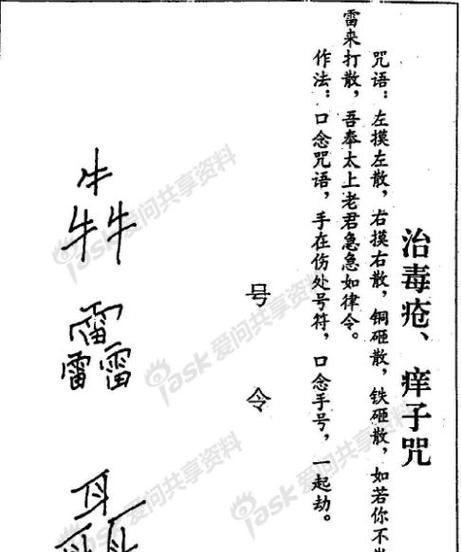 治毒疮、痒子咒
咒语：左摸左散，右摸右散，铜砸散，铁砸散，如若你不
雷来打散，吾奉太上老君急急如律令。
作法：口念咒语，手在伤处号符，口念手号，一起劫。
号令
牛
牛牛
雷
雷雷
耳
耳耳
ask爱问共享资料
ask爱问共享资料
ask爱问共享资料